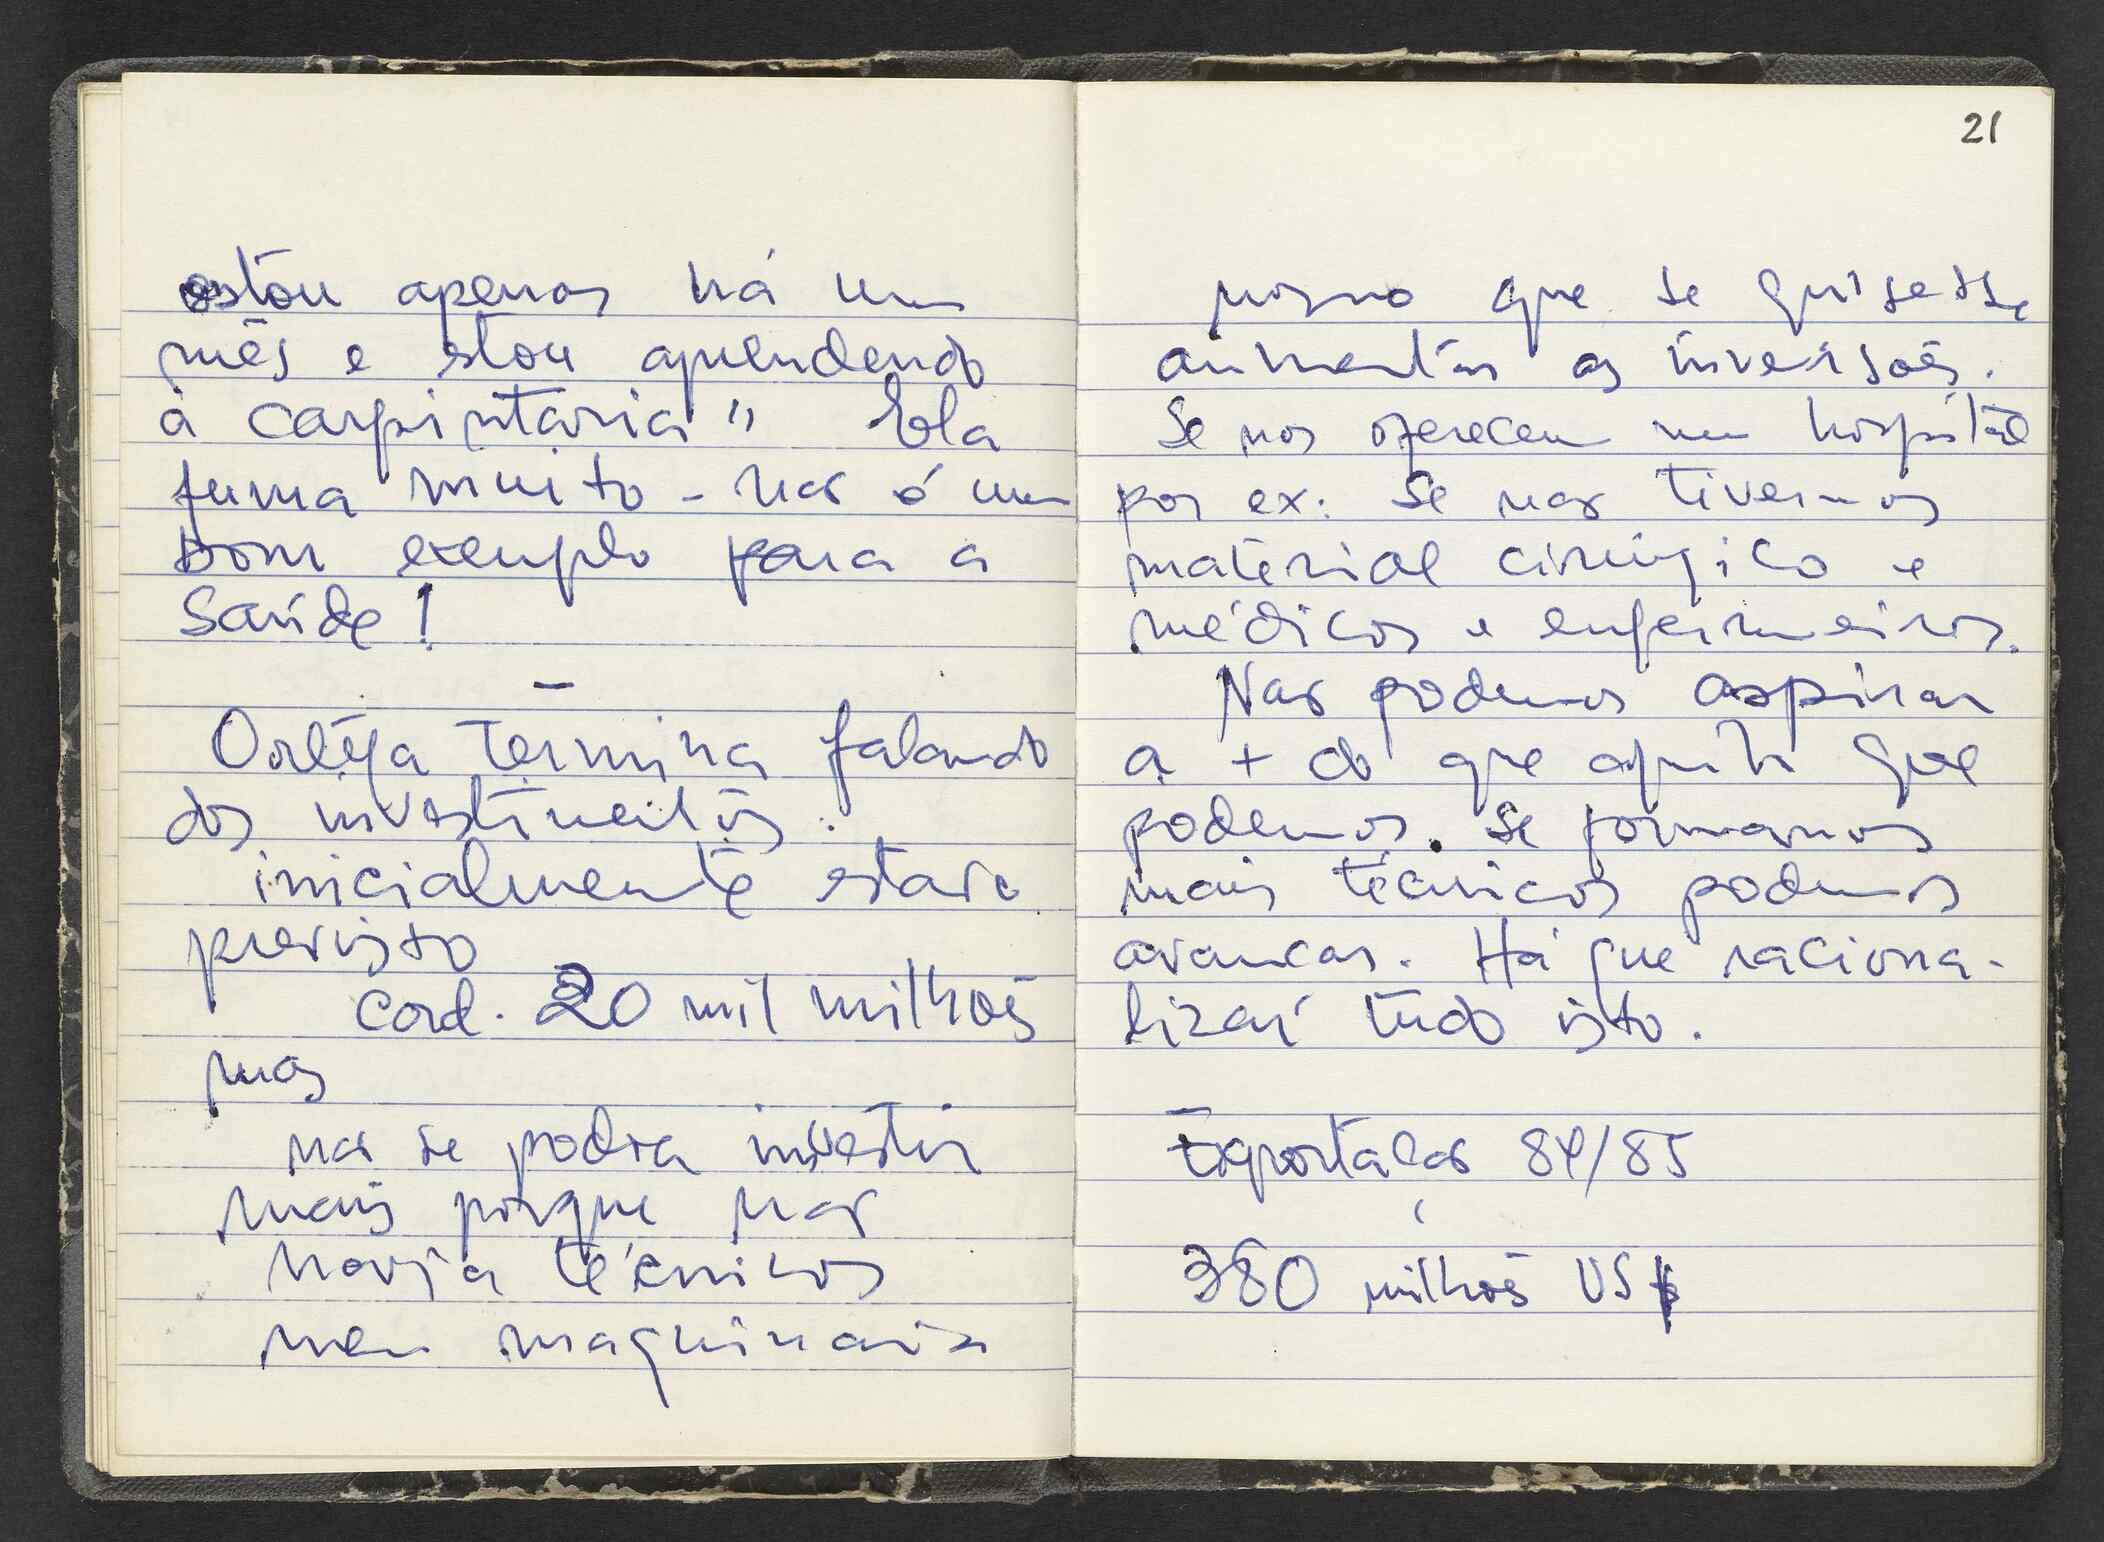 estou apenas há um
mês e estou aprendendo
a carpintaria" Ela
fuma muito - não é um
bom exemplo para a
Saúde!
—
Ortega termina falando
dos investimentos:
inicialmente estava
previsto
Cord. 20 mil milhões
mas
não se podia investir
mais porque não
havia técnicos
nem maquinaria
21
mesmo que se quisesse
aumentar as inversões.
Se nos oferecem um hospital
por ex: Se não tivermos
material cirúrgico e
médicos e enfermeiros.
Não podemos aspirar
a + do que aquilo que
podemos. Se formamos
mais técnicos podemos
avançar. Há que raciona-
lizar tudo isto.
Exportação 84/85
380 milhões US$